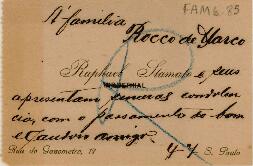 A familia
FAM6.85
Rocco de Marco
Raphael Stamato e seus
apresentam sinceras condolen
cias, com o passamento do bom
e saudoso amigo.
Rua do Gazometro, 19
S. Paulo